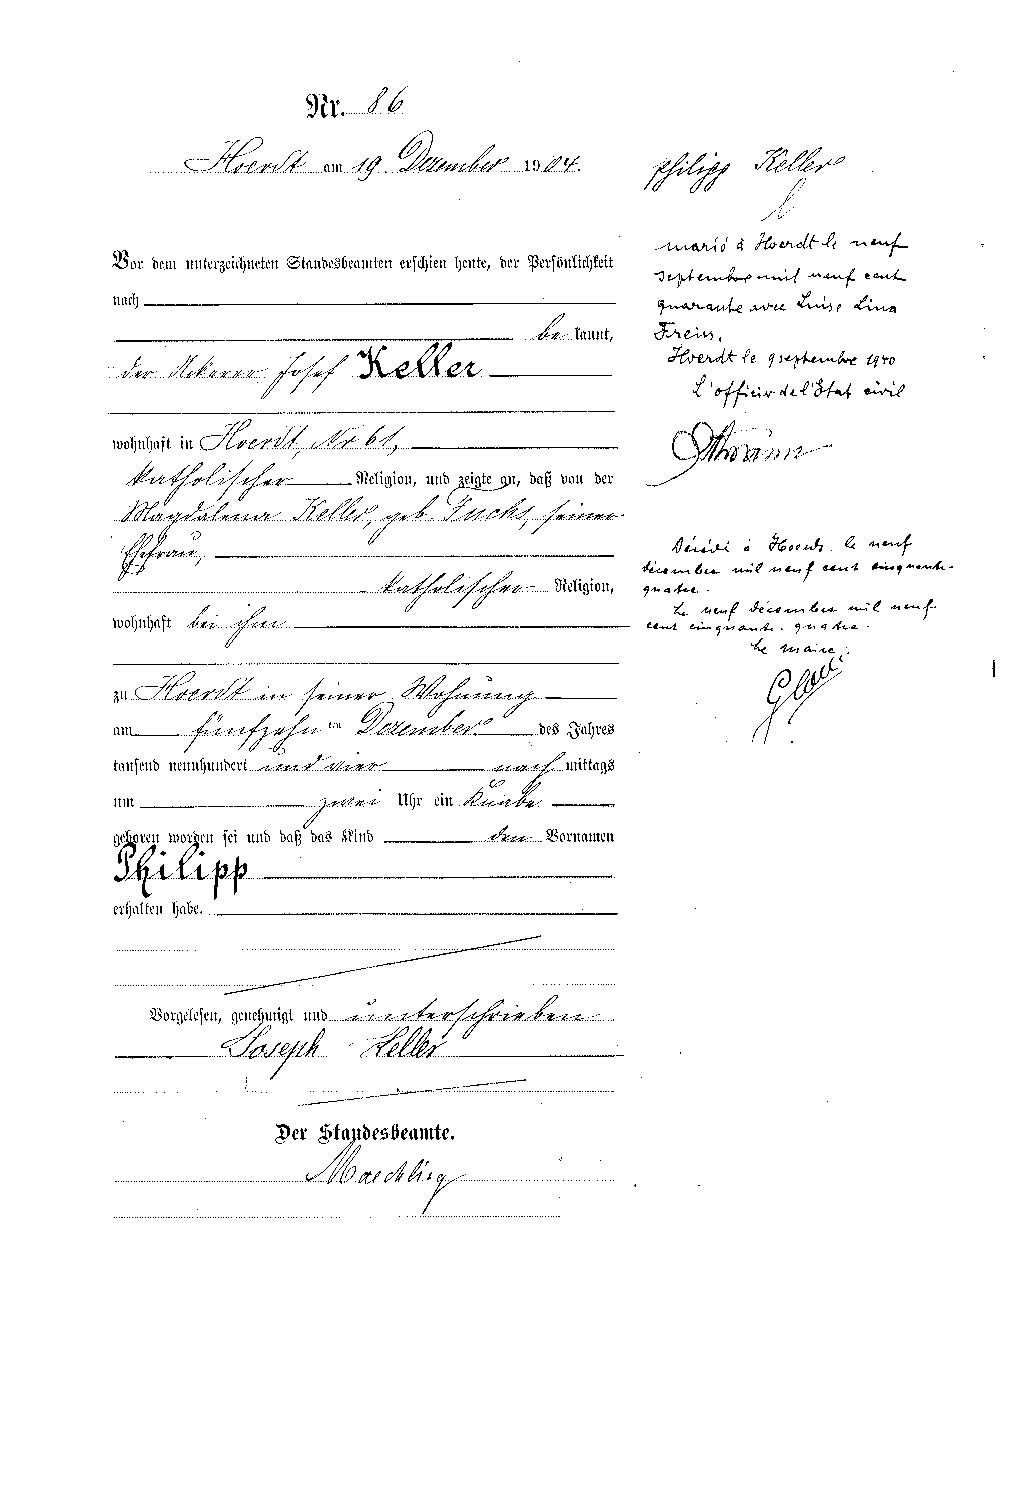 Nr. 86
Hoerdt am 19. Dezember 1904.
Vor dem unterzeichneten Standesbeamten erschien heute, der Persönlichkeit
nach
be kannt,
der Ackerer Josef Keller
wohnhaft in Hoerdt, Nr 61,
katholischer Religion, und zeigte an, daß von der
Magdalena Keller, geb. Fuchs, seiner
Ehefrau,
katholischer Religion,
wohnhaft bei ihm
zu Hoerdt in seiner Wohnung
am fünfzehn ten Dezember des Jahres
tausend neunhundert und vier nach mittags
um zwei Uhr ein Knabe
geboren worden sei und daß das Kind den Vornamen
Philipp
erhalten habe.
Vorgelesen, genehmigt und unterschrieben
Joseph Keller
Der Standesbeamte.
Maechling
Philipp Keller
marié à Hoerdt le neuf
septembre mil neuf cent
quarante avec Luise Lina
Freiss.
Hoerdt le 9 septembre 1940
L'officier de l'Etat civil
Décédé à Hoerdt le neuf
décembre mil neuf cent cinquante-
quatre.
Le neuf décembre mil neuf
cent cinquante-quatre.
Le maire: